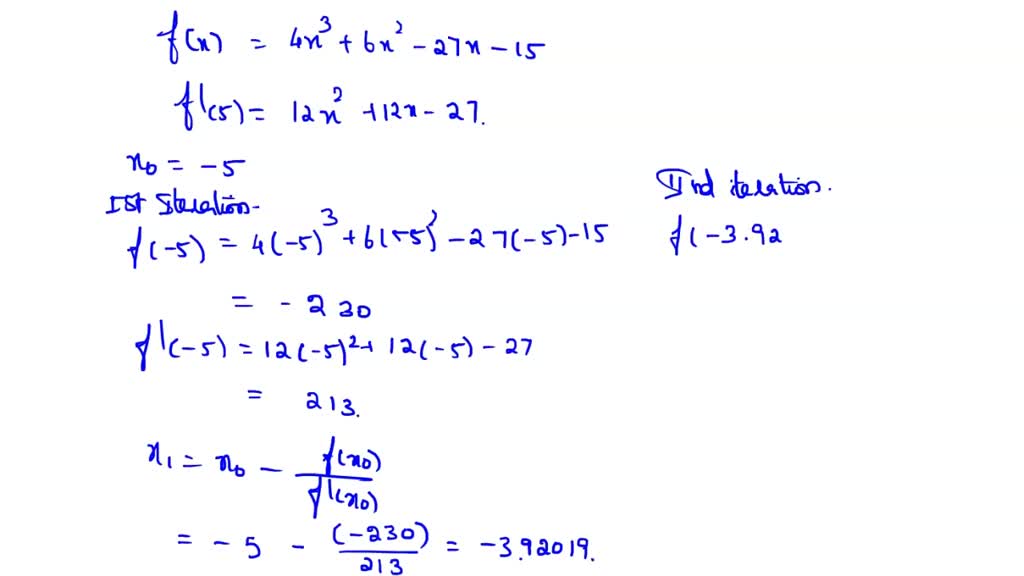 f(x) = 4x³ + 6x² - 27x - 15
f'(5) = 12x² + 12x - 27.
x₀ = -5
Ist Iteration.
f(-5) = 4(-5)³ + 6(-5)² - 27(-5) - 15
= - 230
f'(-5) = 12(-5)² + 12(-5) - 27
= 213.
x₁ = x₀ - f(x₀) / f'(x₀)
= - 5 - (-230) / 213 = -3.92019.
IInd iteration.
f(-3.92